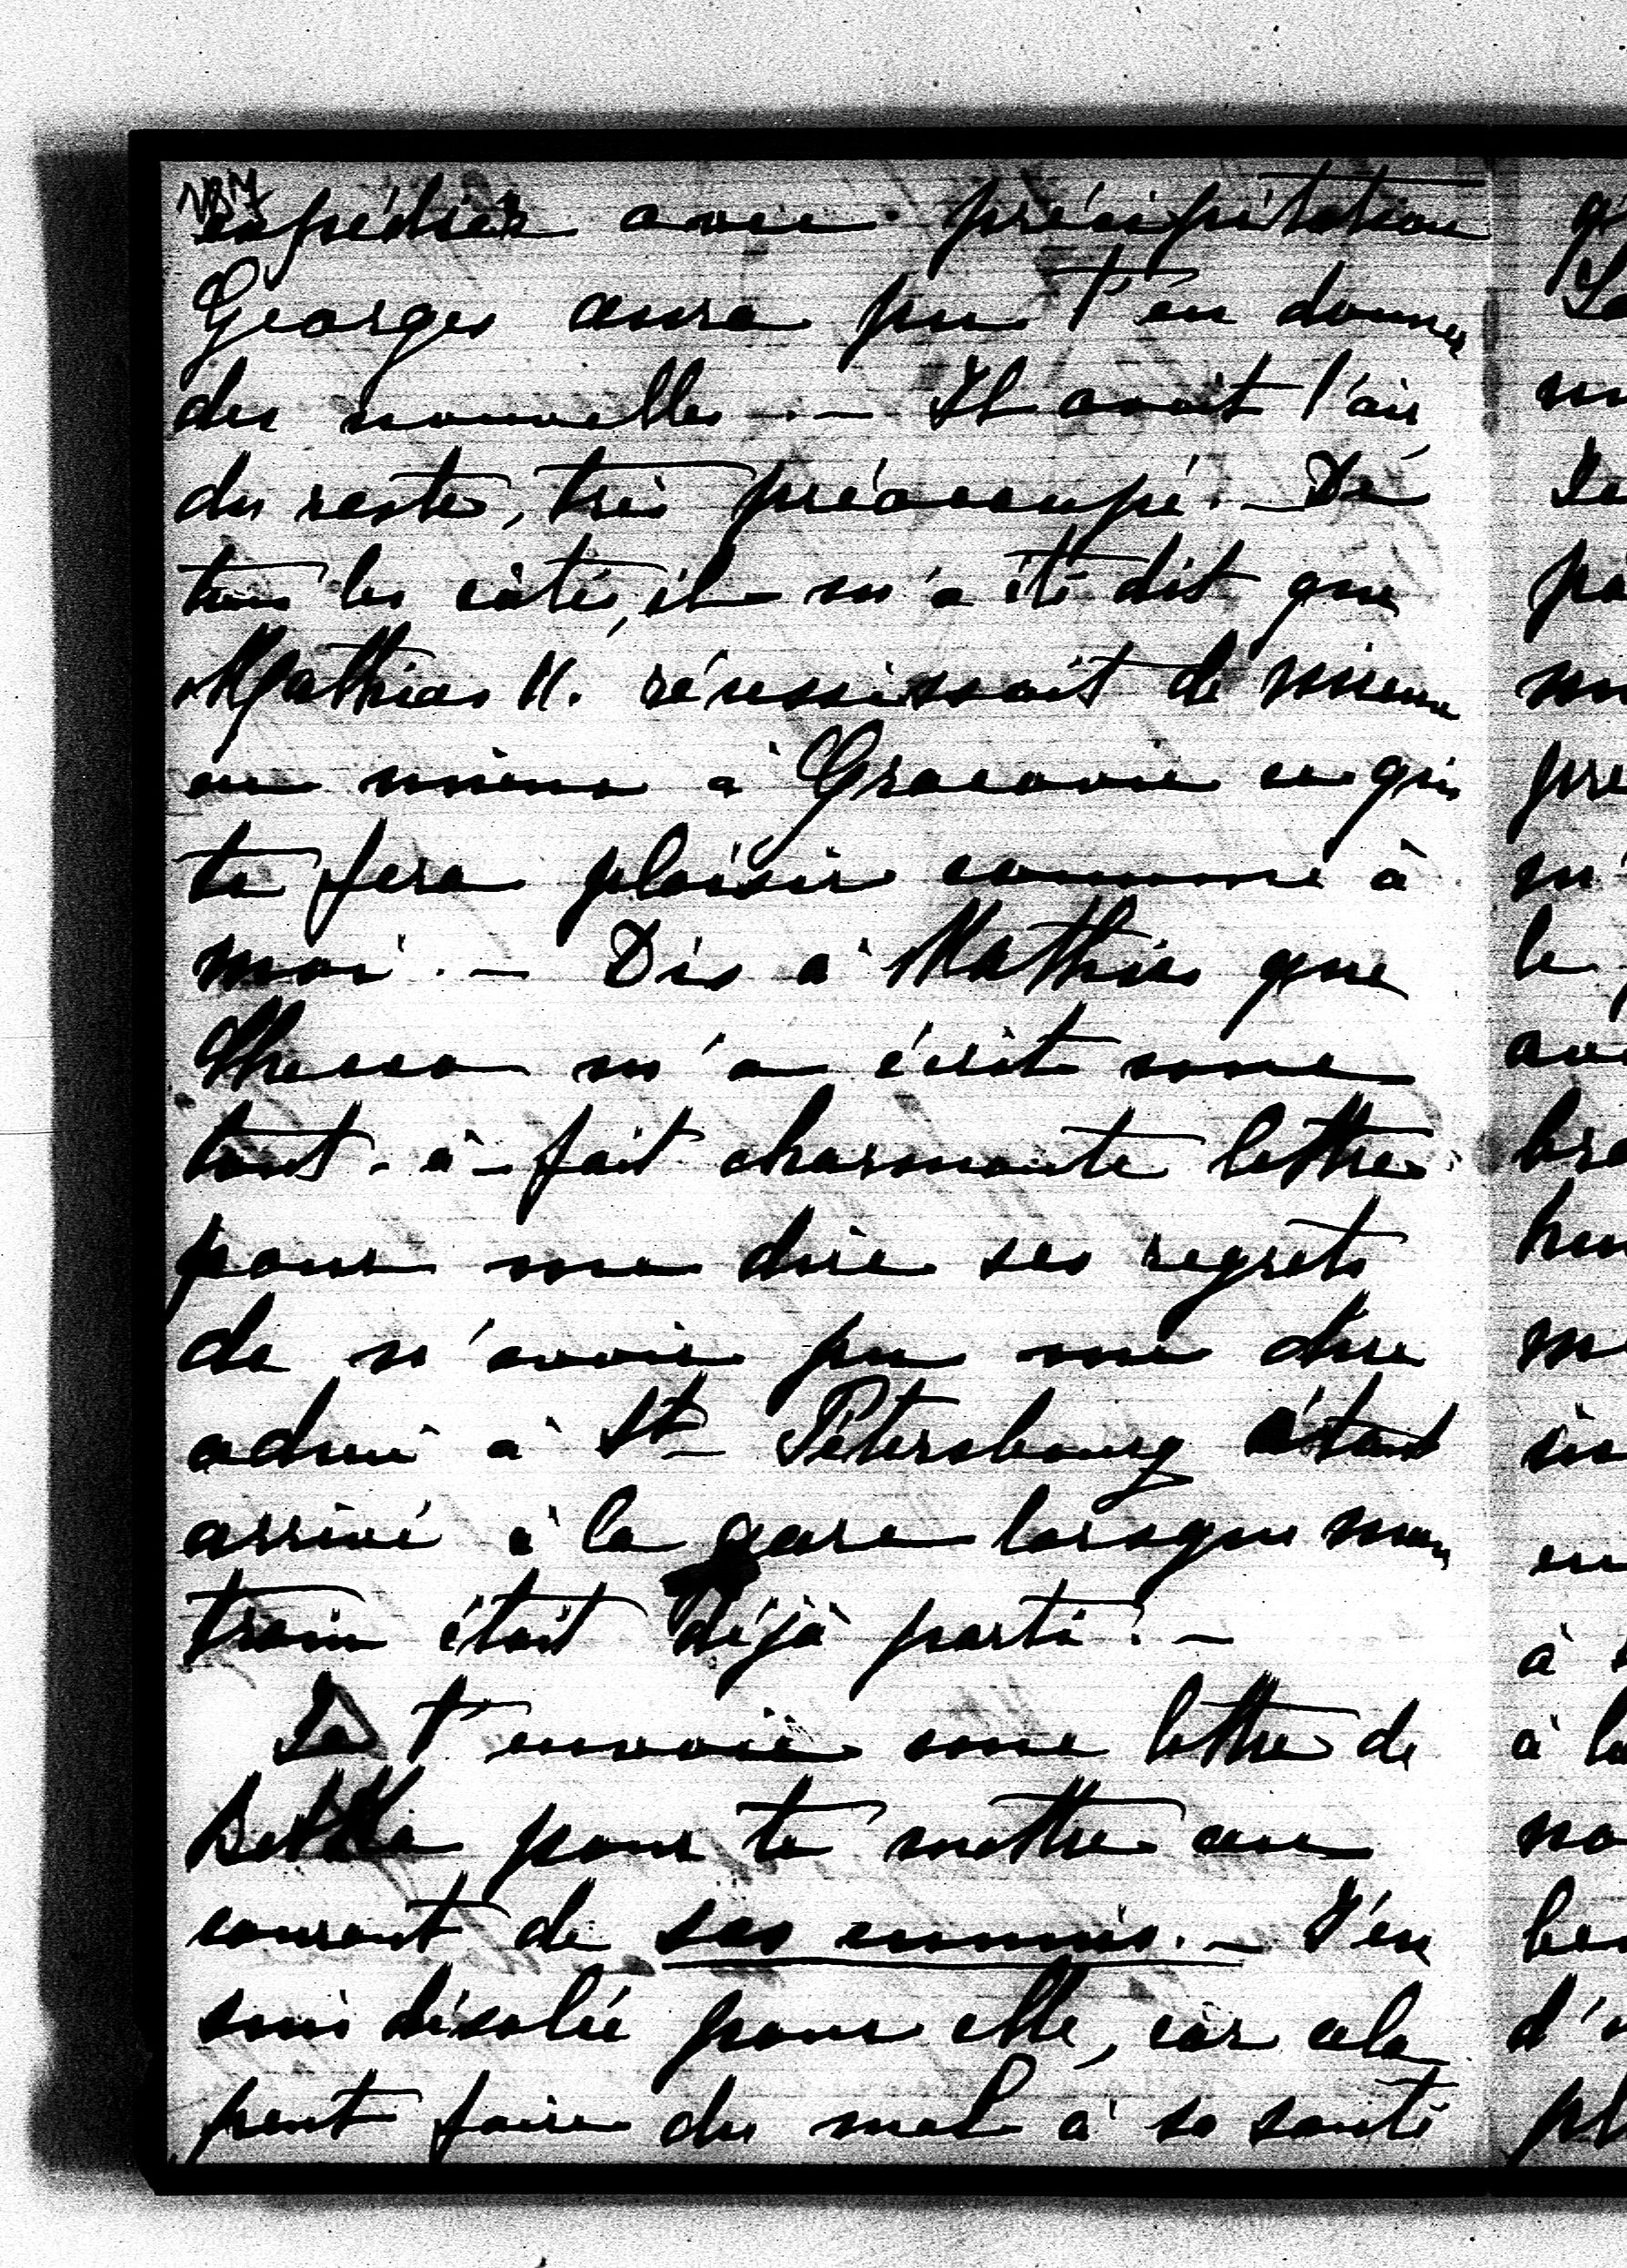 expédiée avec précipitation
Georges aura pu t'en donner
des nouvelles. — Il avait l'air
du reste, très préoccupé. — De
tous les côtés, il m'a été dit que
Mathias U. réussissait de mieux
en mieux à Cracovie ce qui
te fera plaisir comme à
moi. — Dis à Mathias que
m'a écrit une
tout-à-fait charmante lettre
pour me dire ses regrets
de n'avoir pu me dire
adieu à St Pétersbourg étant
arrivé à la gare lorsque mon
train était déjà parti. —
Je t'envoie une lettre de
pour te mettre au
courant de ses ennuis. — J'en
suis désolée pour elle, car cela
peut faire du mal à sa santé